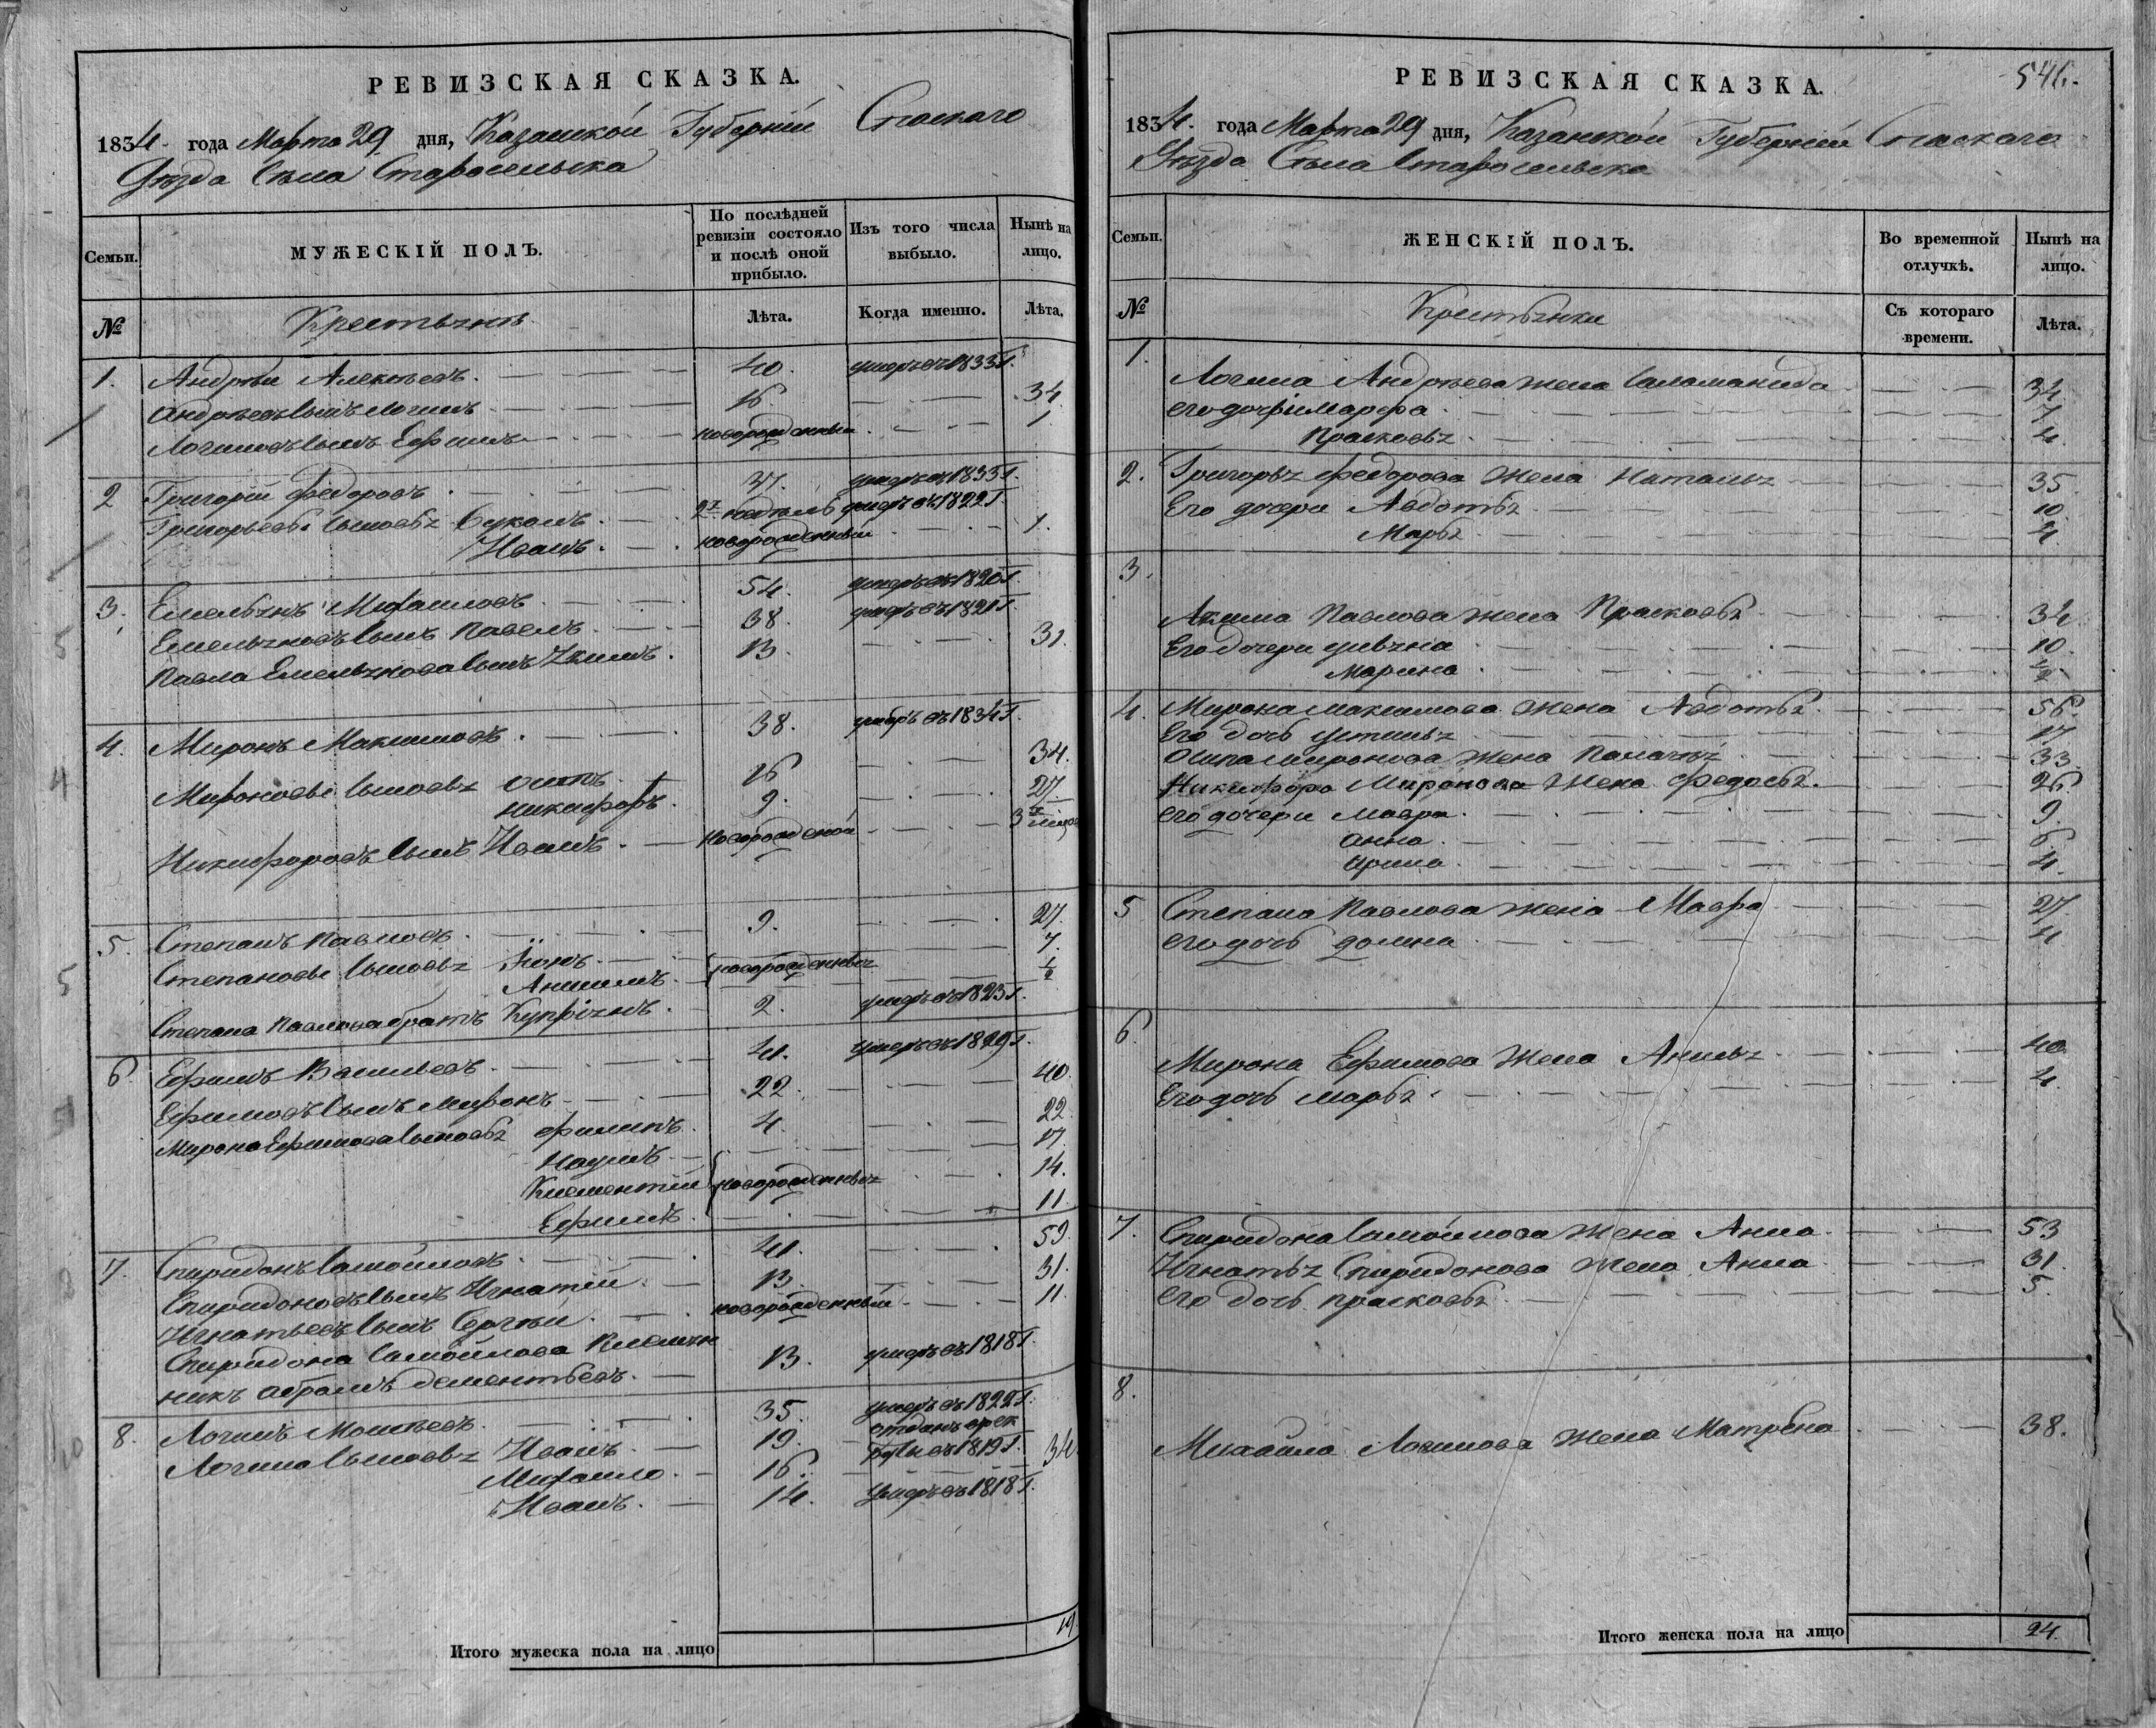 РЕВИЗСКАЯ СКАЗКА.
1834 года Марта 29 дня, Казанской Губернии Спаскаго
Уезда Села Старосельска
Семьи. МУЖЕСКІЙ ПОЛЪ. По послѣдней ревизіи состояло и послѣ оной прибыло. Изъ того числа выбыло. Нынѣ на лицо.
№ Крестьянъ Лѣта. Когда именно. Лѣта.
1. Андрей Алексеевъ. 40. умеръ въ 1833 г.
Андреевъ сынъ Логинъ 16 34
Логиновъ сынъ Ефимъ новорожденный 1
2 Григорий Федоровъ 37. умеръ въ 1833 г.
Григорьевы сыновья 2х недель умеръ въ 1822 г.
Иванъ. новорожденный 1.
3. Емельянъ Михайловъ 54. умеръ въ 1820 г.
Емельяновъ сынъ Павелъ 38. умеръ въ 1821 г.
Павла Емельянова сынъ Якимъ. 13. 31.
4. Миронъ Максимовъ. 38. умеръ въ 1834 г.
Мироновы сыновья Осипъ 16 34.
Никифоръ. 9. 27
Никифоровъ сынъ Иванъ. новорожденой 3х месяц
5. Степанъ Павловъ. 9. 27.
Степановы сыновья 7.
новорожденныя 1/2
Степана Павлова братъ 2. умеръ въ 1823 г.
6. Ефимъ Васильевъ. 41. умеръ въ 1829 г.
Ефимовъ сынъ Миронъ 22. 40.
Мирона Ефимова сыновья Филипъ. 4. 22.
Наумъ 17.
Клементий новорожденныя 14.
Ефимъ. 11.
7. Спиридонъ Самойловъ. 41. 59.
Спиридоновъ сынъ Игнатий. 13. 31.
Игнатьевъ сынъ Сергей. новорожденный 11.
Спиридона Самойлова племян
никъ Абрамъ Дементьевъ. 13. умеръ въ 1818 г.
8. Логинъ Моисеевъ. 35. умеръ въ 1822 г.
Логина сыновья Иванъ. 19. отданъ в рек
руты въ 1819 г.
Михайло. 16. 34
Иванъ. 14. умеръ въ 1818 г.
Итого мужеска пола на лицо 19.
546.
РЕВИЗСКАЯ СКАЗКА.
1834. года Марта 29 дня, Казанской Губернии Спаскаго
Уезда Села Старосельска
Семьи. ЖЕНСКІЙ ПОЛЪ. Во временной отлучкѣ. Нынѣ на лицо.
№ Крестьянки Съ котораго времени. Лѣта.
1. Логина Андреева жена Саламанида 34
его дочери Марфа. 7
Прасковья 4.
2. Григорья Федорова жена Наталья 35.
Его дочери Авдотья 10
Марья 4.
3. Акима Павлова жена Прасковья 34
Его дочери Ульяна 10.
Марина 1/2.
4. Мирона Максимова жена Авдотья. 56.
Его дочь Устинья 17
Осипа Миронова жена Палагея 33.
Никифора Миронова жена Федосья. 26.
его дочери Мавра. 9.
Анна. 6
Арина 4.
5 Степана Павлова жена Мавра 27
его дочь Домна 4
6. Мирона Ефимова жена Анисья 40
Его дочь Марья. 4.
7. Спиридона Самойлова жена Анна. 53
Игнатья Спиридонова жена Анна 31.
его дочь Прасковья 5.
8. Михайла Логинова жена Матрена 38.
Итого женска пола на лицо 24.